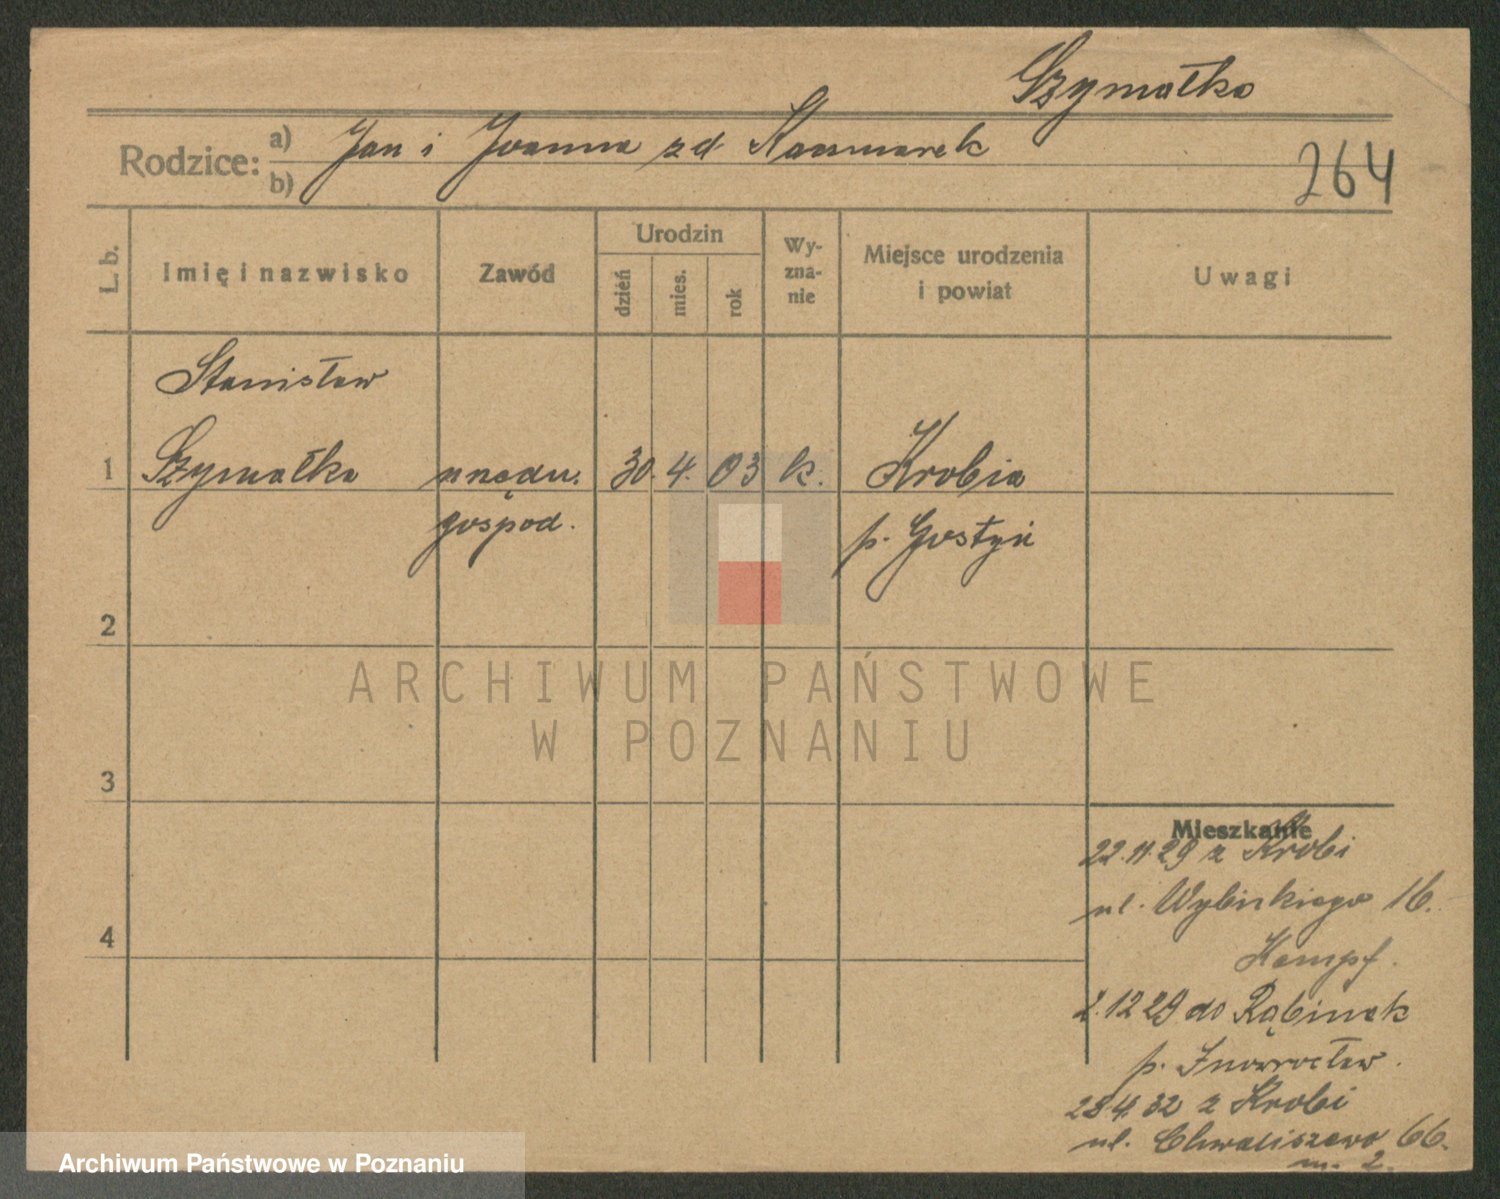 Szymałka
Rodzice:
a) Jan i Joanna zd Kaczmarek
b)
264
L. b.
Imię i nazwisko
Zawód
Urodzin
dzień
mies.
rok
Wy-
zna-
nie
Miejsce urodzenia
i powiat
Uwagi
Stanisław
1 Szymałka urzędn. 30. 4. 03 k. Krobia
gospod. p. Gostyń
2
ARCHIWUM PAŃSTWOWE
W POZNANIU
3
Mieszkanie
22.11.29 z Krobi
ul. Wybickiego 16.
4
Kempf.
2.12 29 do Rąbinek
p. Inowrocław.
28.4.32 z Krobi
ul. Chwaliszewo 66.
m. 2.
Archiwum Państwowe w Poznaniu